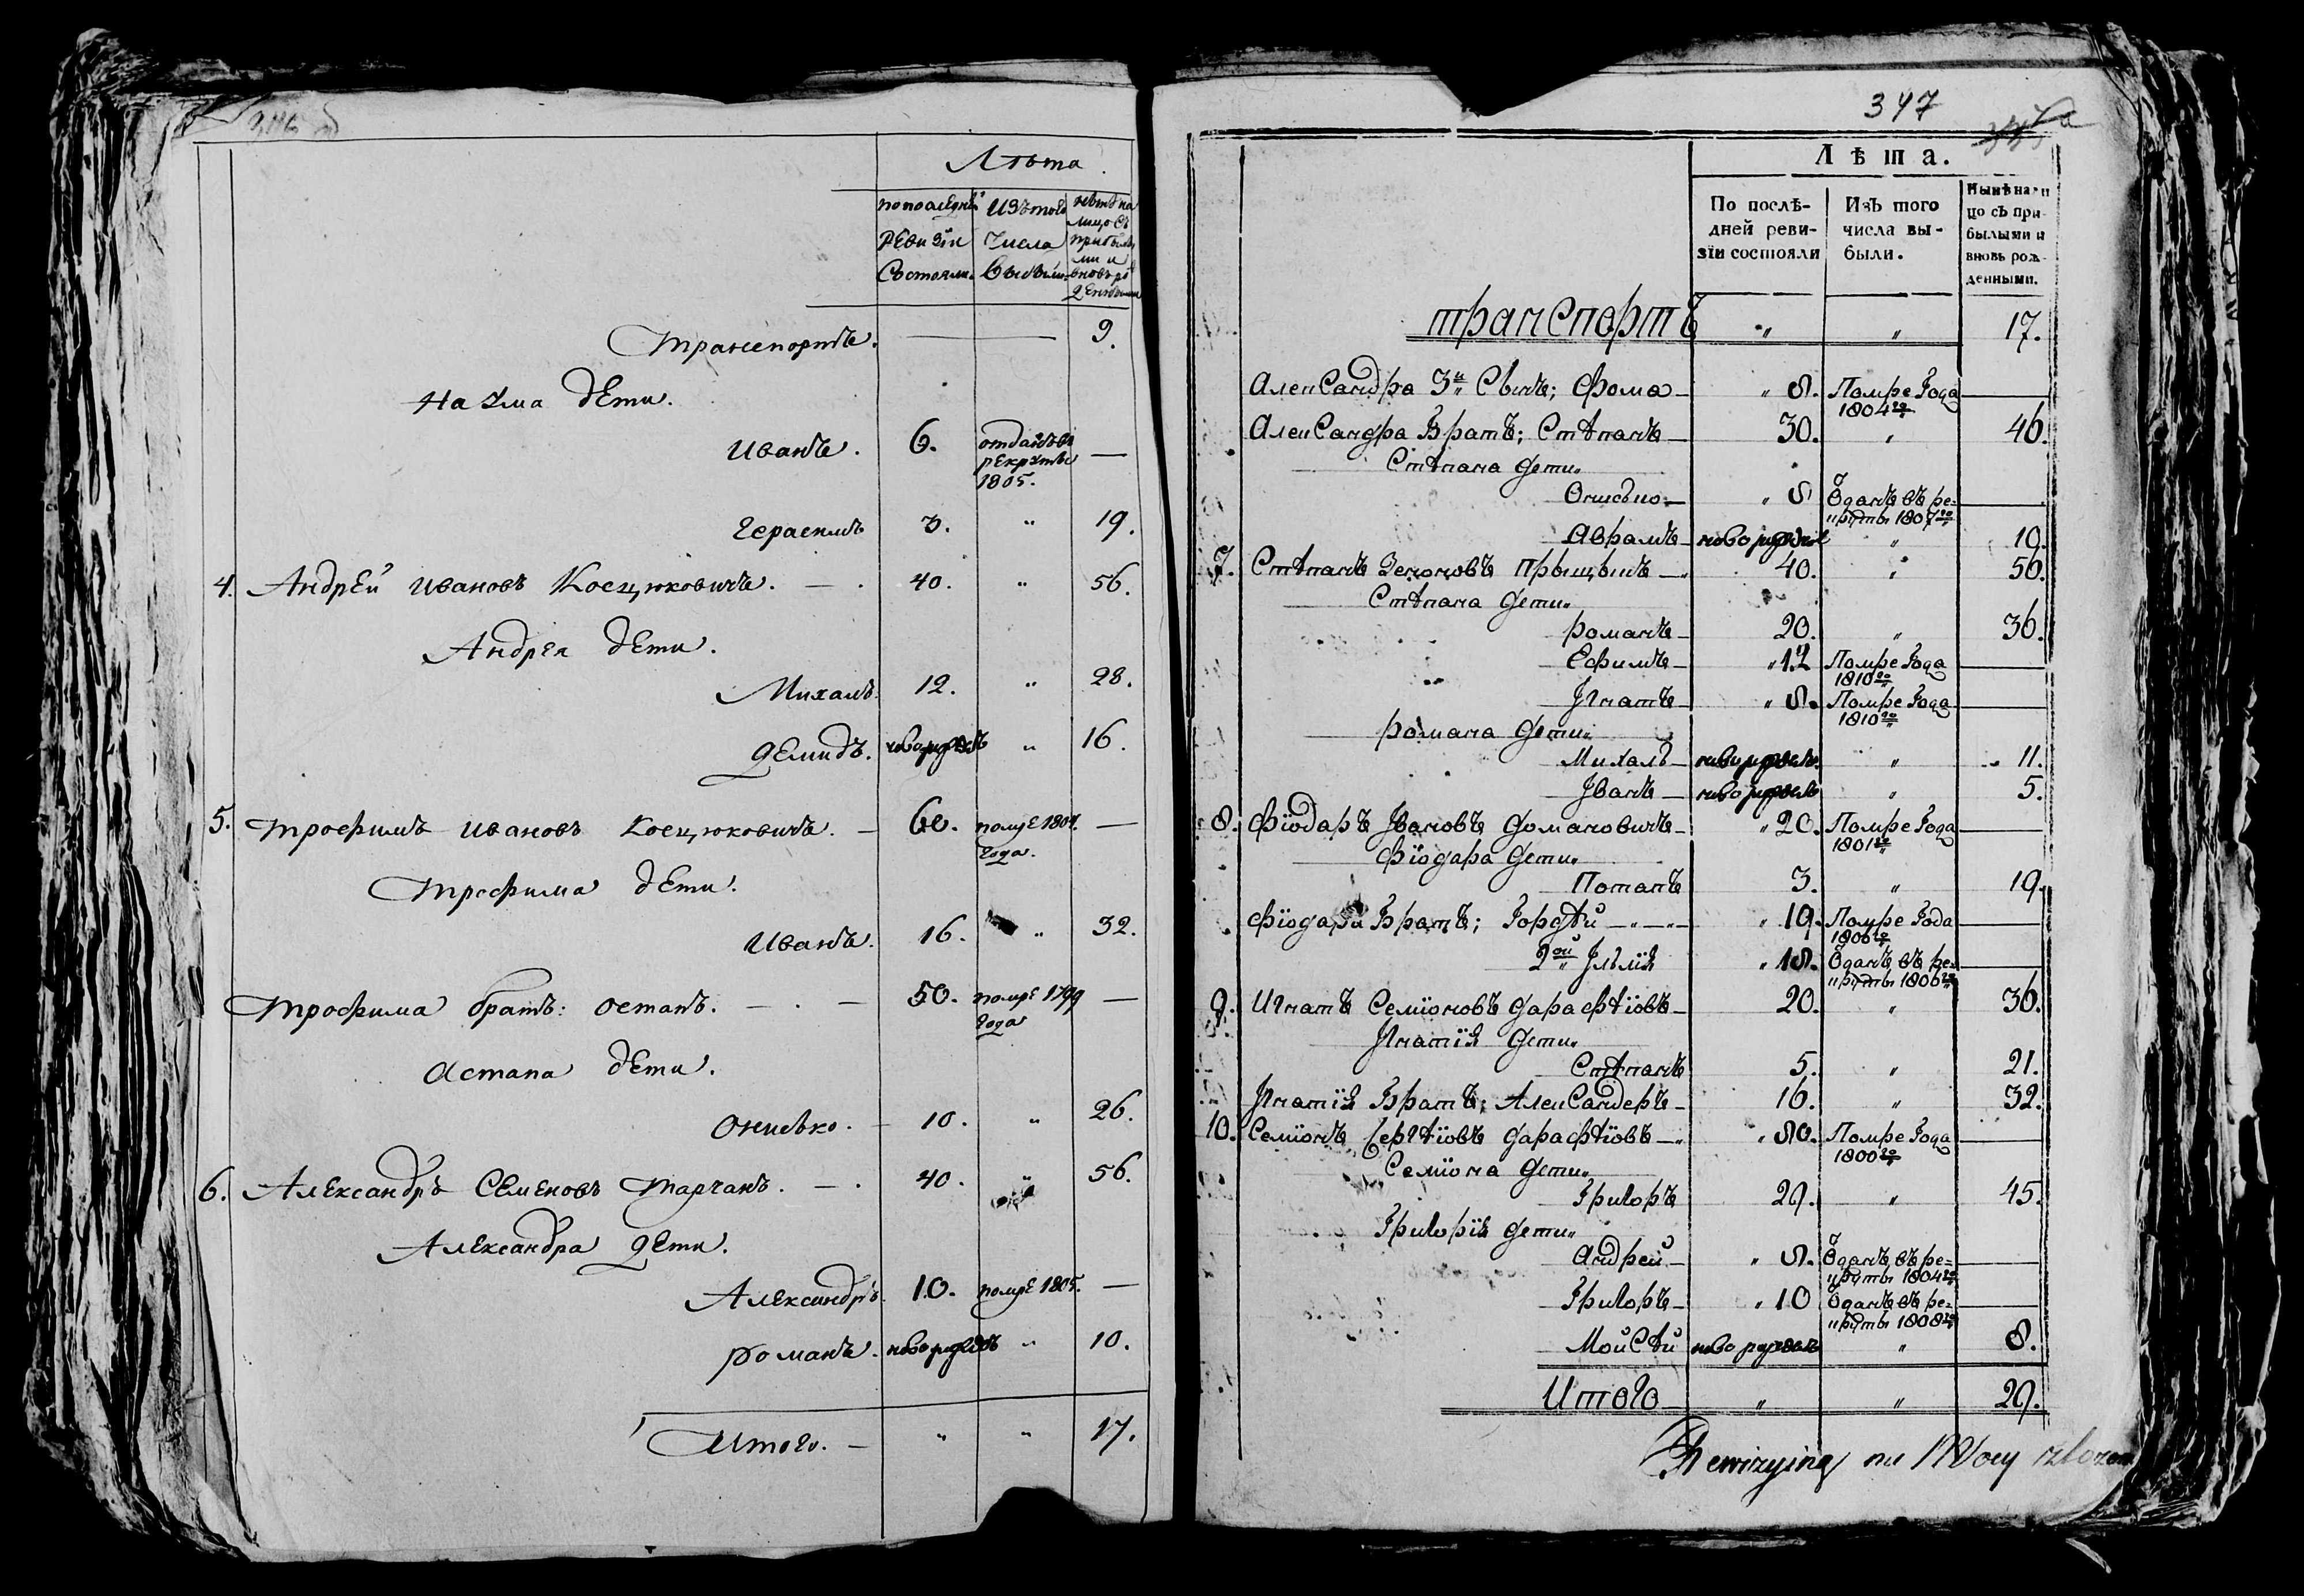 Лѣта.
по послѣдней ревизіи состояли. Изъ того числа выбыли.
Транспортъ. — — 9.
Наума дети.
Иванъ. 6. отданъ въ рекруты 1805. —
Герасимъ 3. " 19.
4. Андрей Ивановъ Косцюковичъ. — . 40. " 56.
Андрея дети.
Михалъ 12. " 28.
Демидъ. новорожденъ " 16.
5. Трофимъ Ивановъ Косцюковичъ. — 60. помре 1807. года. —
Трофима дети.
Иванъ. 16. " 32.
Трофима братъ: Остапъ. — . — 50. помре 1799 года —
Астапа дети.
Онисько. 10. " 26.
6. Александръ Семеновъ Тарчанъ. — . 40. " 56.
Александра дети.
Александръ 10. помре 1805. —
Романъ. новорожденъ " 10.
Итого. — " " 17.
347
Лѣта.
По послѣдней ревизіи состояли
Изъ того числа выбыли.
Нынѣ на лицо съ прибылыми и вновь рожденными.
транспортъ " " 17.
Александра 3й Сынъ; Фома — " 8. Помре Года 1804го —
Александра Братъ; Стѣпанъ — 30. " 46.
Стѣпана дети"
Онисько — " 8 Ѿданъ въ рекруты 1807го —
Аврамъ — новорожден " 10.
7. Стѣпанъ Зеноновъ Прыщыпъ — 40. " 56.
Стѣпана дети"
Романъ — 20. " 36.
Ефимъ — " 12 Помре Года 1810го —
Игнатъ — " 8. Помре Года 1810го —
Романа дети"
Михалъ — новорожден. " 11.
Іванъ — новорожден " 5.
8. Фіодаръ Івановъ Домановичъ — " 20. Помре Года 1801го —
Фіодара дети"
Потапъ 3. " 19.
Фіодара Братъ; Гордѣй — " — " — " 19. Помре Года 1806го —
2ой Ільлія " 18. Ѿданъ въ рекруты 1806го —
9. Игнатъ Семіоновъ Дарафѣіовъ — 20. " 36.
Игнатія дети"
Стѣпанъ 5. " 21.
Игнатія Братъ; Александеръ — 16. " 32.
10. Семіонъ Сергѣіовъ Дарафѣіовъ — " 80. Помре Года 1800го —
Семіона дети"
Григоръ 29. " 45.
Григорія дети"
Андрей — " 8. Ѿданъ въ рекруты 1804го —
Григоръ — " 10 Ѿданъ въ рекруты 1808го —
Мойсѣй новорожден " 8.
Итого — " " 29.